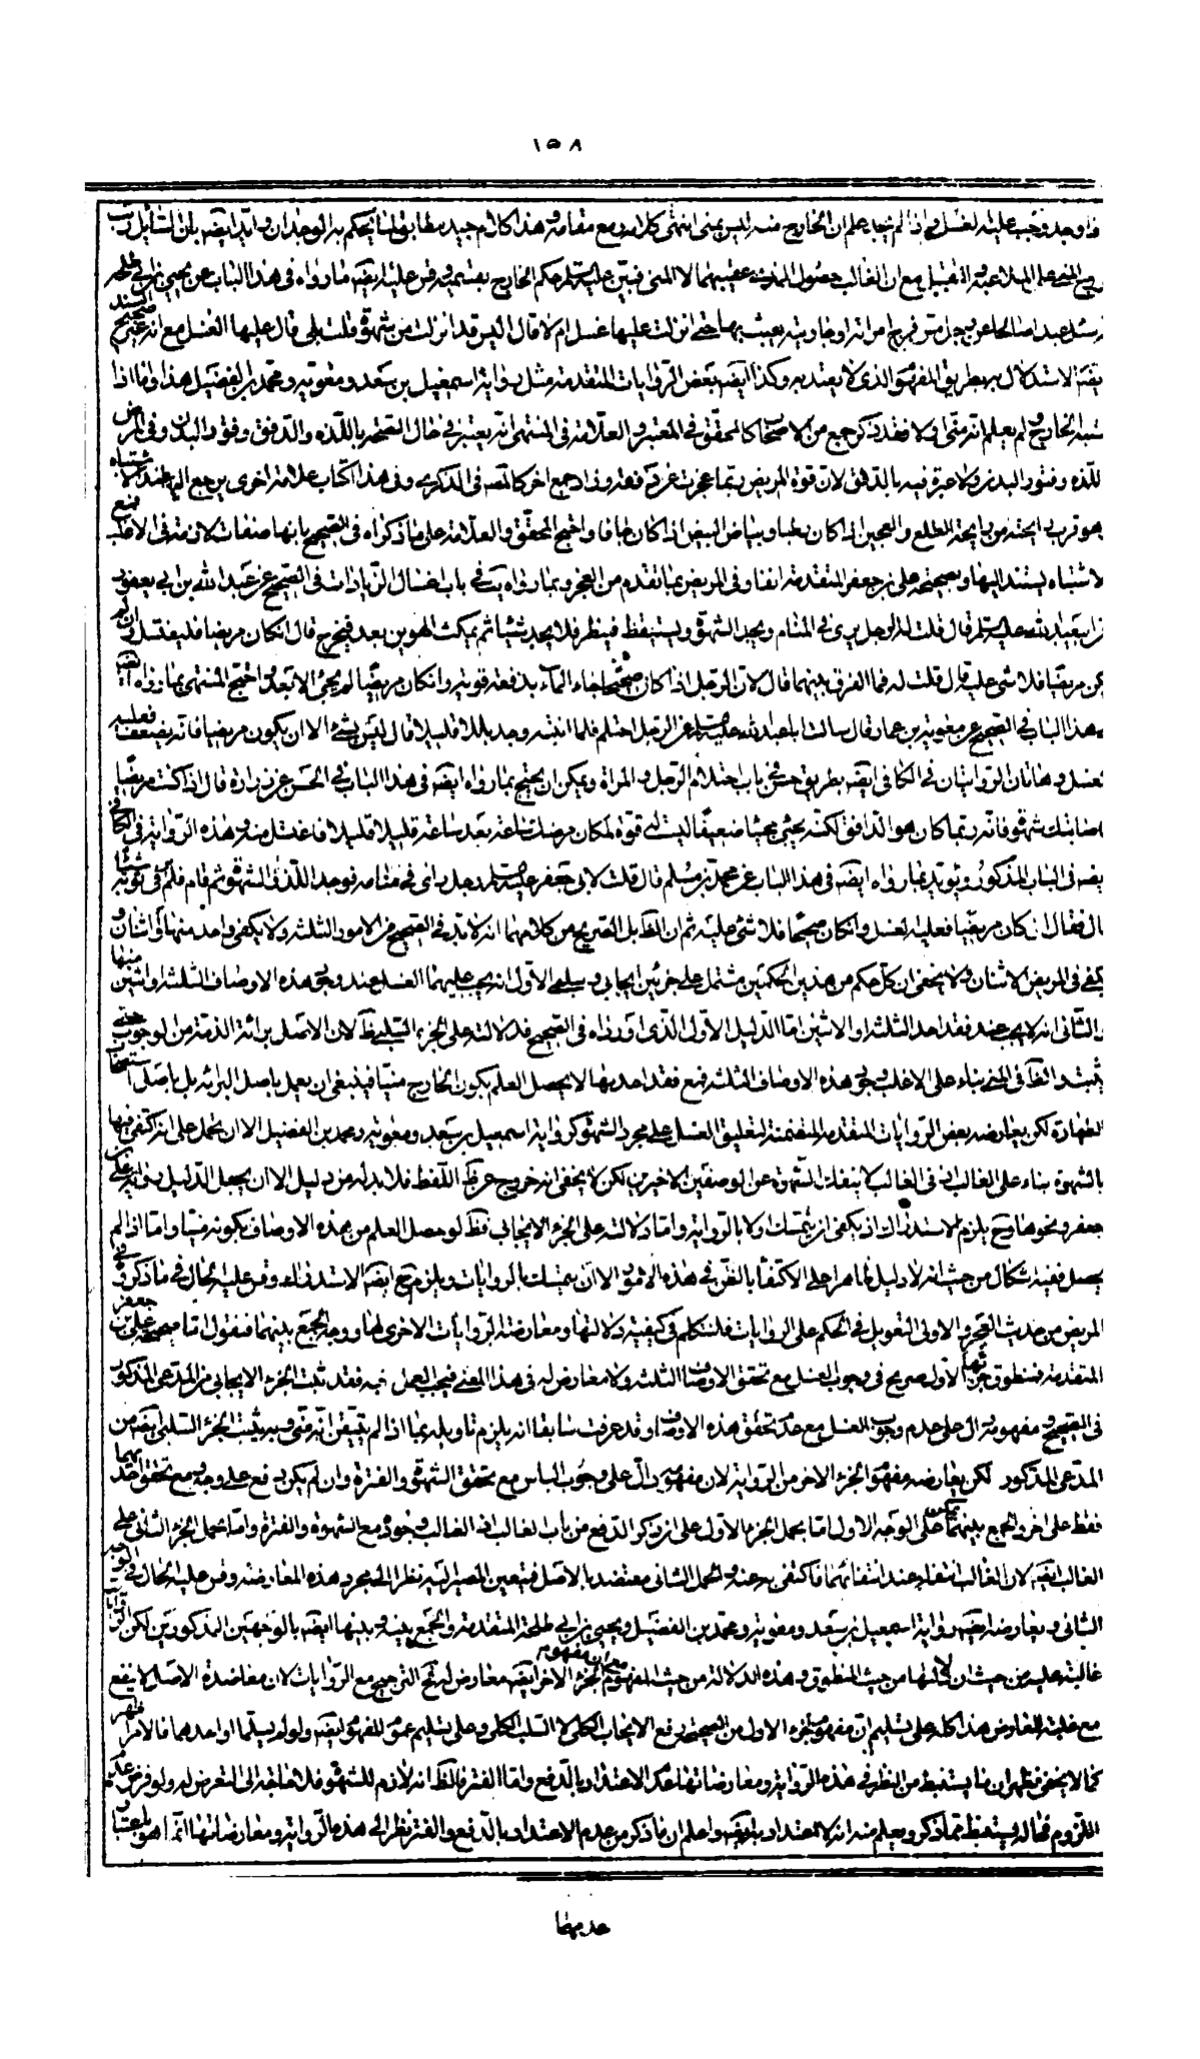 ١٥٨
فاذا وجد وجب عليه الغسل واذا لم يجد علم ان الخارج منه ليس بمنى انتهى كلامه رفع مقامه وهذا كلام جيد مطابق لما يحكم به الوجدان و ايضه بان السائل
على الملاعبة و التقبيل مع ان الغالب حصول المذى عقيبهما لا المنى فبين عليه السلم حكم الخارج بقسميه وقس عليه ايضه ما رواه فى هذا الباب عن يحيى بن ابى طلحة
انه سئل عبدا صالحا عن رجل مس فرج امراته او جاريته يعبث بها حتى انزلت عليها غسل ام لا قال اليس قد انزلت من شهوة قلت بلى قال عليها الغسل مع انه غير صحيح السند
الاستدلال به بطريق المفهوم الذى لا يعتد به وكذا ايضه بعض الروايات المتقدمة مثل رواية اسمعيل بن سعد و معوية و محمد بن الفضيل هذا واما اذا
اشتبه الخارج ولم يعلم انه منى او لا فقد ذكر جمع من الاصحاب كالمحقق فى المعتبر و العلامة فى المنتهى انه يعتبر فى حال الصحة باللذة والدفق وفتور البدن وفى المرض
اللذة وفتور البدن ولا عبرة فيه بالدفق لان قوة المريض ربما عجزت عن دفعه وزاد جمع اخر كالمصه فى الذكرى وفى هذا الكتاب علامة اخرى يرجع اليها عند الاشتباه
هو قرب رايحته من رايحة الطلع والعجين اذا كان رطبا وبياض البيض اذا كان جافا واحتج المحقق و العلامة على ما ذكراه فى الصحيح بانها صفات لازمة فى الاغلب فمع
الاشتباه يستند اليها وبصحيحة على بن جعفر المتقدمة انفا وفى المريض بما تقدم من العجز وبما رواه يب فى باب اغسال الزيادات فى الصحيح عن عبد الله بن ابى يعفور
عن ابى عبد الله عليه السلم قال قلت له الرجل يرى فى المنام ويجد الشهوة ويستيقظ فينظر فلا يجد شيئا ثم يمكث الهوين بعد فيخرج قال ان كان مريضا فليغتسل وان لم
يكن مريضا فلا شئ عليه قال قلت له فما الفرق بينهما قال لان الرجل اذا كان صحيحا جاء الماء بدفعة قوية وان كان مريضا لم يجئ الا بعد واحتج المنتهى بما رواه ايضه
فى هذا الباب فى الصحيح عن معوية بن عمار قال سالت ابا عبد الله عليه السلم عن الرجل احتلم فلما انتبه وجد بللا قليلا قال ليس بشئ الا ان يكون مريضا فانه يضعف فعليه
الغسل وهاتان الروايتان فى الكافى ايضه بطريق حسن فى باب احتلام الرجل والمراة ويمكن ان يحتج بما رواه ايضه فى هذا الباب فى الحسن عن زرارة قال اذا كنت مريضا
فاصابتك شهوة فانه ربما كان هو الدافق لكنه يجئ مجيئا ضعيفا ليست له قوة لمكان مرضك ساعة بعد ساعة قليلا قليلا فاغتسل منه وهذه الرواية فى الكافى
ايضه فى الباب المذكور ويؤيده بما رواه ايضه فى هذا الباب عن محمد بن مسلم قال قلت لابى جعفر عليه السلم رجل راى فى منامه فوجد اللذة والشهوة ثم قام فلم ير فى ثوبه شيئا
قال فقال ان كان مريضا فعليه الغسل وان كان صحيحا فلا شئ عليه ثم ان الظ بل الصريح من كلامهما انه لا بد فى الصحيح من الامور الثلثة ولا يكفى واحد منها او اثنان و
يكفى فى المريض الاثنان ولا يخفى ان كل حكم من هذين الحكمين مشتمل على جزئين ايجابى وسلبى الاول انه يجب عليهما الغسل عند وجود هذه الاوصاف الثلثة او اثنين منها
والثانى انه لا يجب عند فقد احد الثلثة او الاثنين اما الدليل الاول الذى اورداه فى الصحيح فدلالته على الجزء السلبى ظ لان الاصل برائة الذمة من الوجوب حتى
يثبت بناء على الاغلب وجود هذه الاوصاف الثلثة فمع فقد احديها لا يحصل العلم بكون الخارج منيا فينبغى ان يعمل باصل البرائة بل باصل استصحاب
الطهارة لكن يعارضه بعض الروايات المتقدمة المتضمنة لتعليق الغسل على مجرد الشهوة كرواية اسمعيل بن سعد و معوية ومحمد بن الفضيل الا ان تحمل على انه اكتفى فيها
بالشهوة بناء على الغالب اذ فى الغالب لا ينفك الشهوة عن الوصفين الاخيرين لكن لا يخفى انه خروج عن ظ اللفظ فلا بد له من دليل الا ان يجعل الدليل رواية على بن
جعفر ونحوها وح يلزم الاستدراك اذ يكفى ان يتمسك اولا بالرواية واما دلالته على الجزء الايجابى فظ لو حصل العلم من هذه الاوصاف بكونه منيا واما اذا لم
يحصل ففيه اشكال من حيث انه لا دليل ظاهرا على الاكتفاء بالظن فى هذه الامور الا ان يتمسك بالروايات ويلزم ح ايضه الاستدراك وقس عليه الحال فى ما ذكروه فى
المريض من حديث العجز و الاولى التعويل فى الحكم على الروايات فلنتكلم فى كيفية دلالتها ومعارضة الروايات الاخرى لها ووجه الجمع بينهما فنقول اما صحيحة على بن جعفر
المتقدمة فمنطوق جزئها الاول صريح فى وجوب الغسل مع تحقق الاوصاف الثلثة ولا معارض له فى هذا المعنى فيجب العمل به فقد ثبت الجزء الايجابى من المدعى المذكور
فى الصحيح و مفهومه دال على عدم وجوب الغسل مع عدم تحقق هذه الاوصاف وقد عرفت سابقا انه يلزم تاويله بما اذا لم يتيقن انه منى وبه يثبت الجزء السلبى ايضه من
المدعى المذكور لكن يعارضه مفهوم الجزء الاخر من الرواية لان مفهومه دال على وجوب الباس مع تحقق الشهوة والفترة وان لم يكن دفع على وجه ومع تحقق احديهما
فقط على اخر والجمع بينهما يمكن على الوجه الاول اما بحمل الجزء الاول على ان ذكر الدفع من باب الغالب اذ الغالب وجوده مع الشهوة والفترة واما بحمل الجزء الثانى على
الغالب ايضه لان الغالب انتفاء عند انتفائهما فاكتفى به عنه والحمل الثانى معتضد بالاصل فتعين المصير اليه نظرا الى مجرد هذه المعارضة وقس عليه الحال فى الوجه
الثانى و يعارضه ايضه رواية اسمعيل بن سعد ومعوية ومحمد بن الفضيل ويحيى بن ابى طلحة المتقدمة والجمع بينه وبينها ايضه بالوجهين المذكورين لكن الروايات
غالبة عليه من حيث ان دلالتها من حيث المنطوق وهذه الدلالة من حيث المفهوم مع ان مفهوم الجزء الاخر ايضه معارض له فح الترجيح مع الروايات لان معاضدة الاصل لا ينفع
مع غلبة المعارض هذا كله على تسليم ان مفهوم جزء الاول من الصحيحة رفع الايجاب الكلى لا السلب الكلى وعلى تسليم عموم المفهوم ايضه ولو لم يسلما او احدهما فالامر اظهر
كما لا يخفى فظهر ان ما يستنبط من النظر فى هذه الرواية ومعارضاتها عدم الاعتداد بالدفع واما الفتر فالظ انه لازم للشهوة فلا حاجة الى التعرض له ولو فرض عدم
اللزوم فحاله يستنبط مما ذكر ويعلم منه انه لا اعتداد به ايضه واعلم ان ما ذكر من عدم الاعتداد بالدفع والفتر نظرا الى هذه الرواية ومعارضاتها انما هو باعتبار